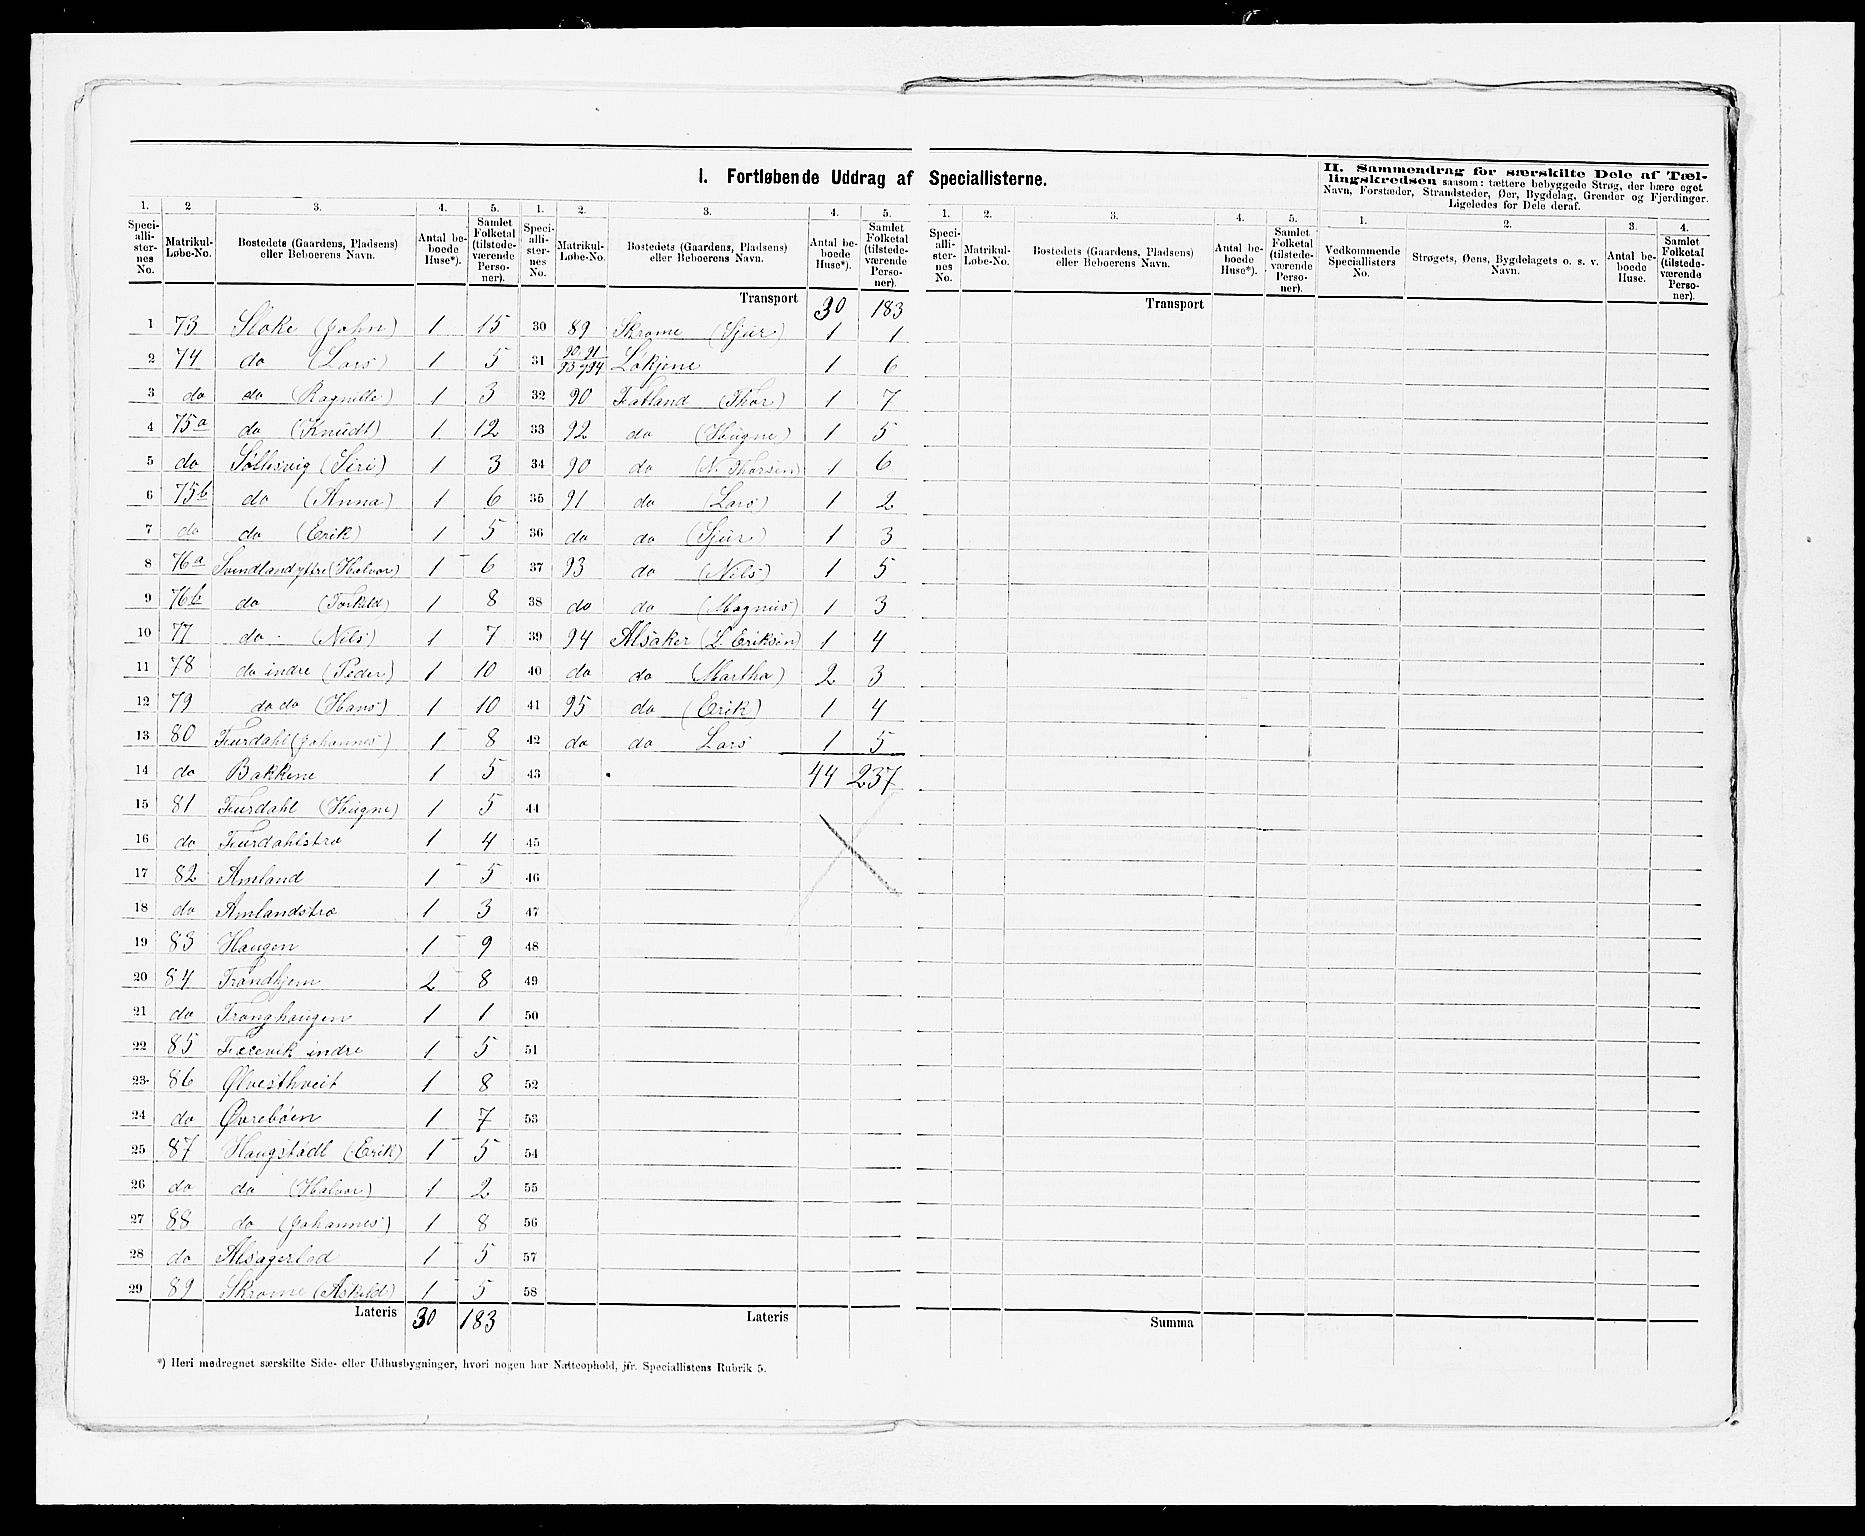 I. Fortløbende Uddrag af Speciallisterne.
II. Sammendrag for særskilte Dele af Tællingskredsen saasom: tættere bebyggede Strøg, der bære eget
Navn, Forstæder, Strandsteder, Øer, Bygdelag, Grender og Fjerdinger.
Ligeledes for Dele deraf.
1. 2 3. 4. 5. 1. 2. 3. 4. 5. 1. 2. 3. 4. 5. 1. 2. 3. 4.
Speciallisternes No. Matrikul-Løbe-No. Bostedets (Gaardens, Pladsens) eller Beboerens Navn. Antal beboede Huse*). Samlet Folketal (tilstedeværende Personer).
Speciallisternes No. Matrikul-Løbe-No. Bostedets (Gaardens, Pladsens) eller Beboerens Navn. Antal beboede Huse*). Samlet Folketal (tilstedeværende Personer).
Speciallisternes No. Matrikul-Løbe-No. Bostedets (Gaardens, Pladsens) eller Beboerens Navn. Antal beboede Huse*). Samlet Folketal (tilstedeværende Personer).
Vedkommende Speciallisters No. Strøgets, Øens, Bygdelagets o. s. v. Navn. Antal beboede Huse. Samlet Folketal (tilstedeværende Personer).
Transport 30 183
Transport
1 73 Stoke (John) 1 15
2 74 do (Lars) 1 5
3 do do (Ragnille) 1 3
4 75a do (Knudt) 1 12
5 do Søllesvig (Siri) 1 3
6 75b do (Anna) 1 6
7 do do (Erik) 1 5
8 76a Svendland yttre (Halvor) 1 6
9 76b do (Torkild) 1 8
10 77 do (Nils) 1 7
11 78 do indre (Peder) 1 10
12 79 do do (Hans) 1 10
13 80 Furdahl (Johannes) 1 8
14 do Bakkene 1 5
15 81 Furdahl (Hugne) 1 5
16 do Furdahlstrø 1 4
17 82 Amland 1 5
18 do Amlandstrø 1 3
19 83 Haugen 1 9
20 84 Trondhjem 2 8
21 do Tronghaugen 1 1
22 85 Farevik indre 1 5
23 86 Ølvesthveit 1 8
24 do Øvrebøen 1 7
25 87 Haugstadl (Erik) 1 5
26 do do (Halvor) 1 2
27 88 do (Johannes) 1 8
28 do Alsagerlod 1 5
29 89 Skrome (Askild) 1 5
Lateris 30 183
30 89 Skrome (Sjur) 1 1
31 90 91 93 94 Løkjene 1 6
32 90 Fatland (Thor) 1 7
33 92 do (Hugne) 1 5
34 90 do (N. Thorsen) 1 6
35 91 do (Lars) 1 2
36 do do (Sjur) 1 3
37 93 do (Nils) 1 5
38 do do (Magnus) 1 3
39 94 Alsaker (L. Eriksen) 1 4
40 do do (Martha) 2 3
41 95 do (Erik) 1 4
42 do do Lars 1 5
43 44 237
44
45
46
47
48
49
50
51
52
53
54
55
56
57
58
Lateris
Summa
*) Heri medregnet særskilte Side- eller Udhusbygninger, hvori nogen har Natteophold, jfr. Speciallistens Rubrik 5.